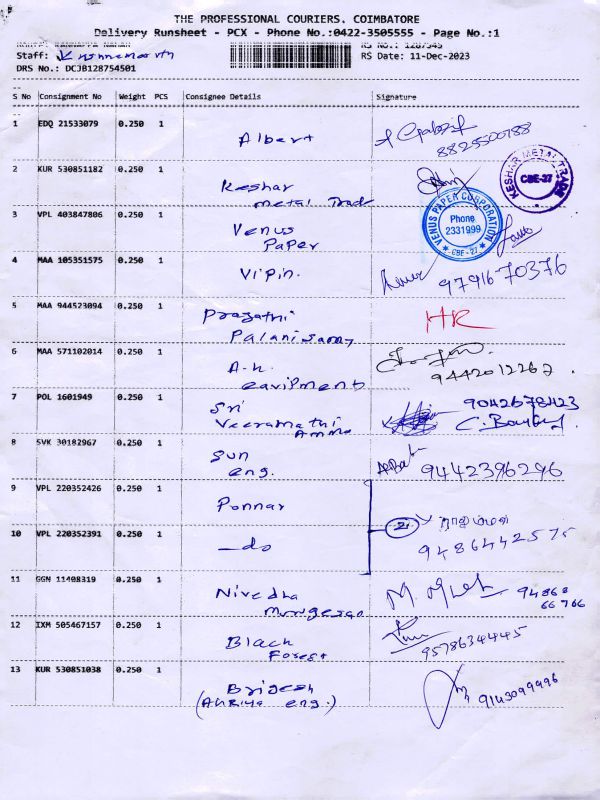 THE PROFESSIONAL COURIERS. COIMBATORE
Delivery Runsheet - PCX - Phone No.:0422-3505555 - Page No.:1
RS No.: 1287545
Staff:
RS Date: 11-Dec-2023
DRS No.: DCJB128754501
S No Consignment No Weight PCS Consignee Details Signature
1 EDQ 21533079 0.250 1 Albert
8825500788
2 KUR 530851182 0.250 1 Keshar
metal Trade
KESHAR METAL TRADE
CBE-27
3 VPL 403847806 0.250 1 Venus
Paper
VENUS PAPER CORPORATION
Phone
2331999
CBE-27
4 MAA 105351575 0.250 1 Vipin.
9791670376
5 MAA 944523094 0.250 1 Pragathi
Palanisamy
HR
6 MAA 571102014 0.250 1 A.K.
equipment
9442012262
7 POL 1601949 0.250 1 Sri
Veeramathi
Amma
9042678423
8 SVK 30182967 0.250 1 Sun
eng.
9442396296
9 VPL 220352426 0.250 1 Ponnar
2
10 VPL 220352391 0.250 1 —do
9486442575
11 GGN 11408319 0.250 1 Nivedha
Murugesan
94868
66766
12 IXM 505467157 0.250 1 Black
Forest
9578634445
13 KUR 530851038 0.250 1 Brigesh
(Ahriya eng.)
9143099996